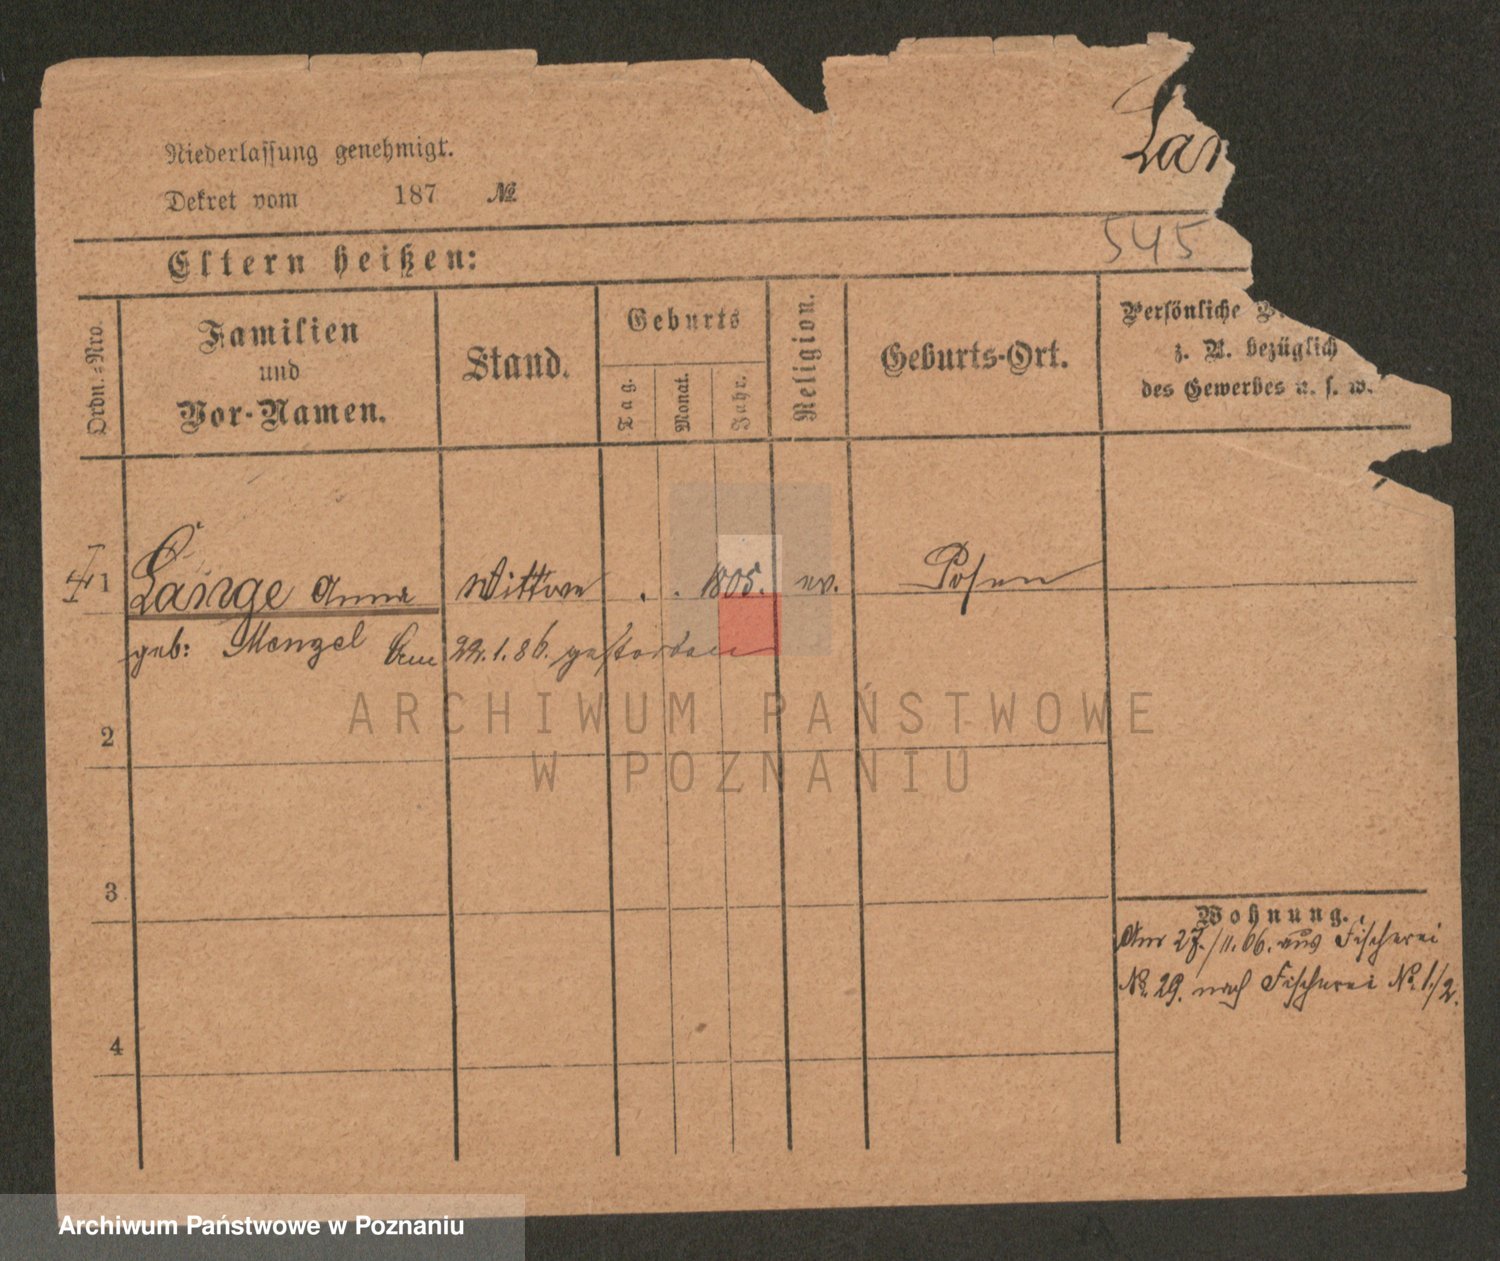 Lan
Niederlassung genehmigt.
Dekret vom 187 №
545
Eltern heißen:
Ordn.=Nro.
Familien
und
Vor-Namen.
Stand.
Geburts
Tag.
Monat.
Jahr.
Religion.
Geburts-Ort.
Persönliche
z. B. bezüglich
des Gewerbes u. s. w.
1 Lange Anna Wittwe . . 1805. ev. Posen
geb: Menzel Am 22.1.86. gestorben
ARCHIWUM PAŃSTWOWE
W POZNANIU
2
3
4
Wohnung.
Am 27./11. 06. aus Fischerei
No. 29. nach Fischerei No. 1/2.
Archiwum Państwowe w Poznaniu